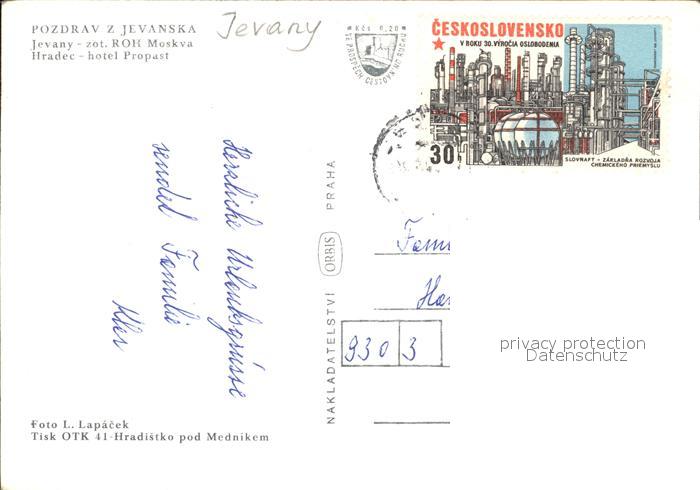 POZDRAV Z JEVANSKA
Jevany - zot. ROH Moskva
Hradec - hotel Propast
Jevany
Kčs 0,20
VE PROSPĚCH CESTOVNÍHO RUCHU
ČESKOSLOVENSKO
V ROKU 30. VÝROČIA OSLOBODENIA
30
SLOVNAFT - ZÁKLADŇA ROZVOJA
CHEMICKÉHO PRIEMYSLU
Herzliche Urlaubsgrüsse
sendet Familie
NAKLADATELSTVÍ ORBIS PRAHA
Fam
Ha
930 3
privacy protection
Datenschutz
Foto L. Lapáček
Tisk OTK 41-Hradištko pod Medníkem